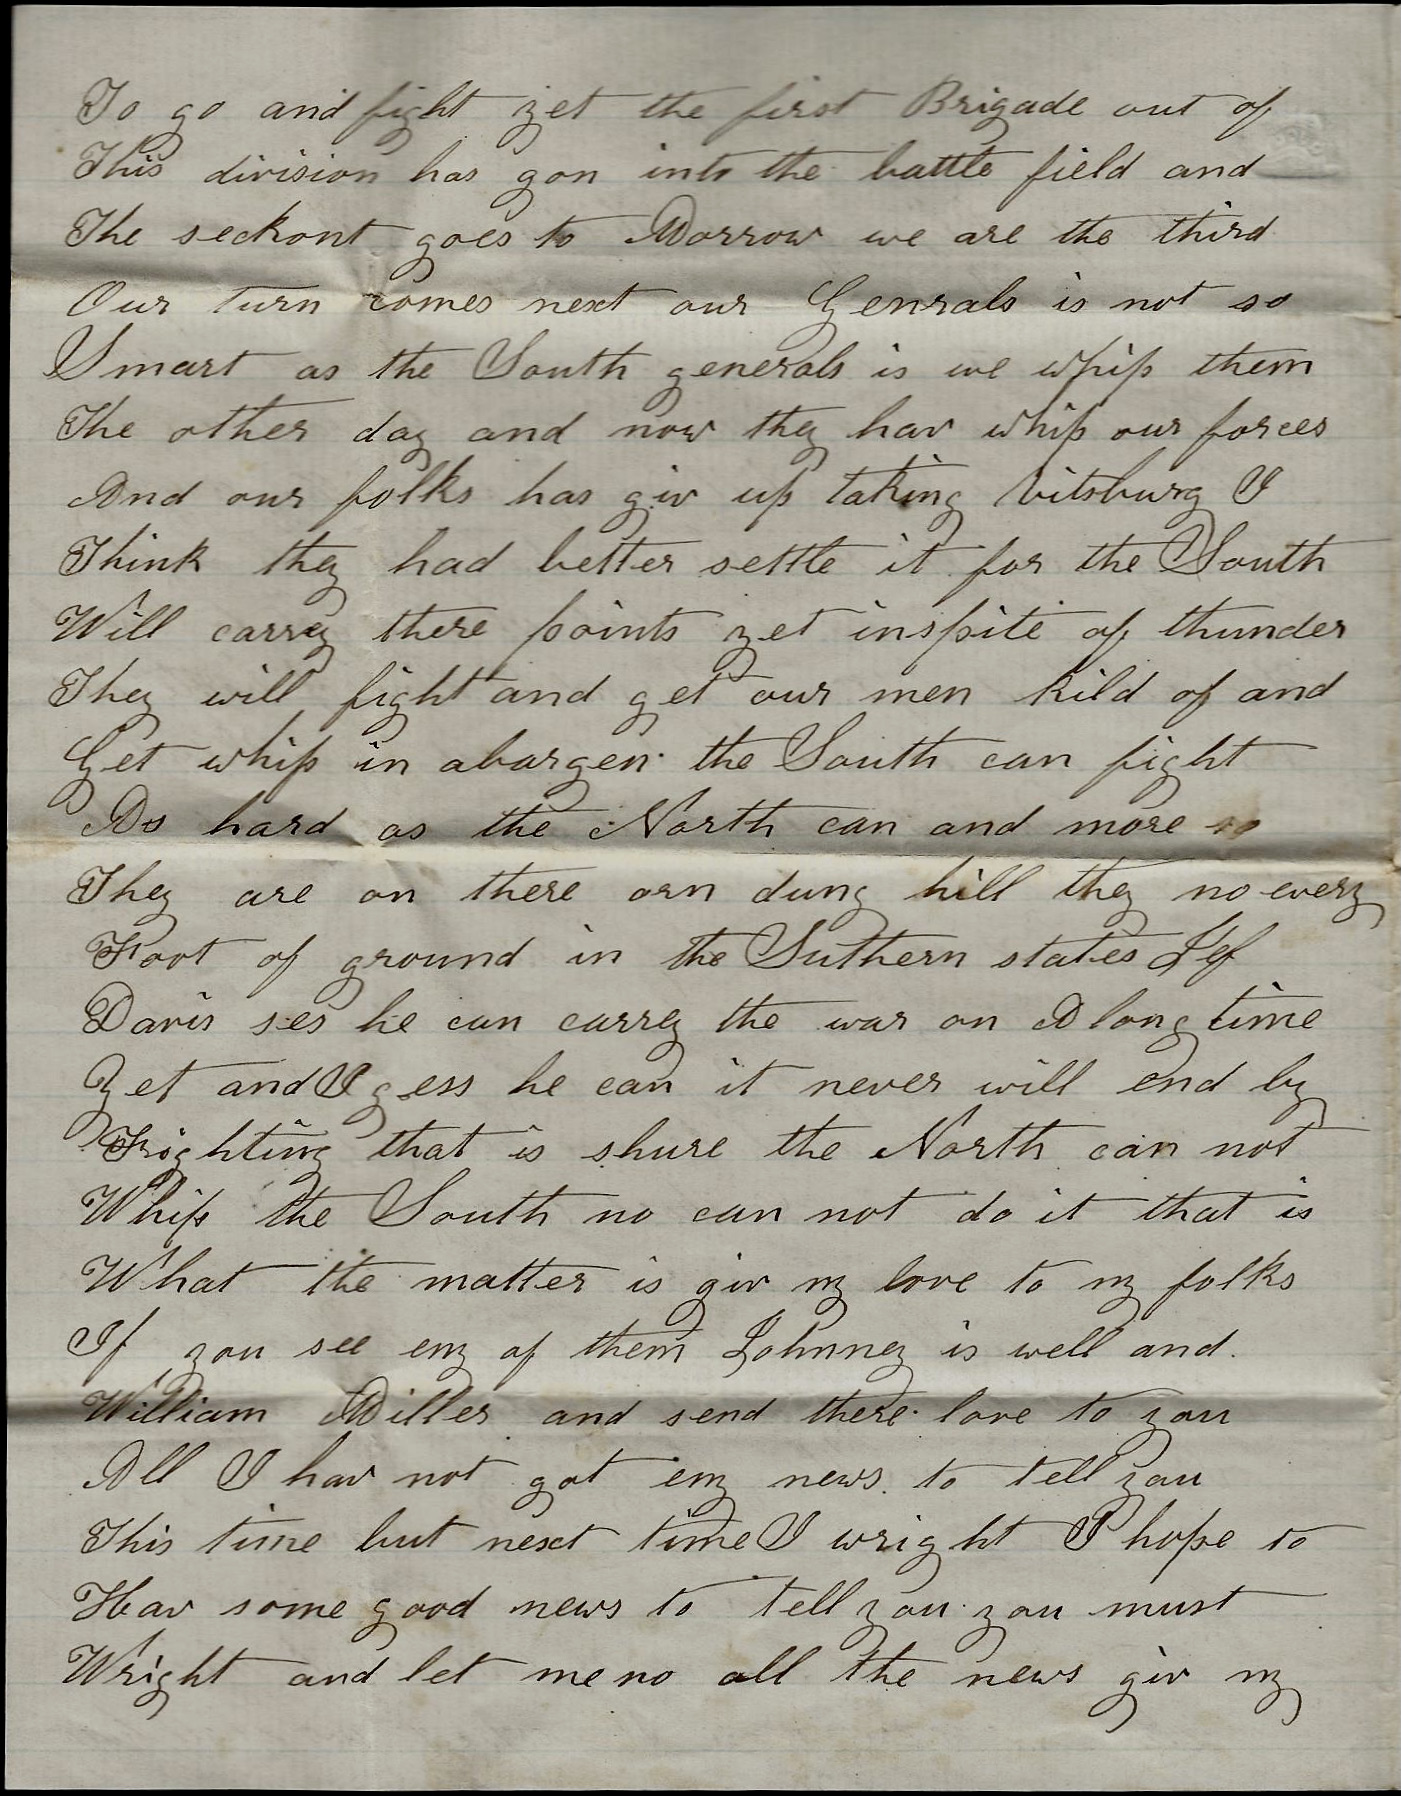 To go and fight yet the first Brigade out of
This division has gon into the battle field and
The seckont goes to Morrow we are the third
Our turn comes next our Genrals is not so
Smart as the South generals is we whip them
The other day and now they hav whip our forces
And our folks has giv up taking Vitsburg I
Think they had better settle it for the South
Will carrey there points yet inspite of thunder
They will fight and get our men kild of and
Get whip in abargen the South can fight
As hard as the North can and more so
They are on there orn dung hill they no every
Foot of ground in the Suthern states Jef
Davis ses he can carrey the war on A long time
Yet and I gess he can it never will end by
Frighting that is shure the North can not
Whip the South no can not do it that is
What the matter is giv my love to my folks
If you see eny of them Johnney is well and
William Miller and send there love to you
All I hav not got eny news to tell you
This time but next time I wright I hope to
Hav some good news to tell you you must
Wright and let me no all the news giv my